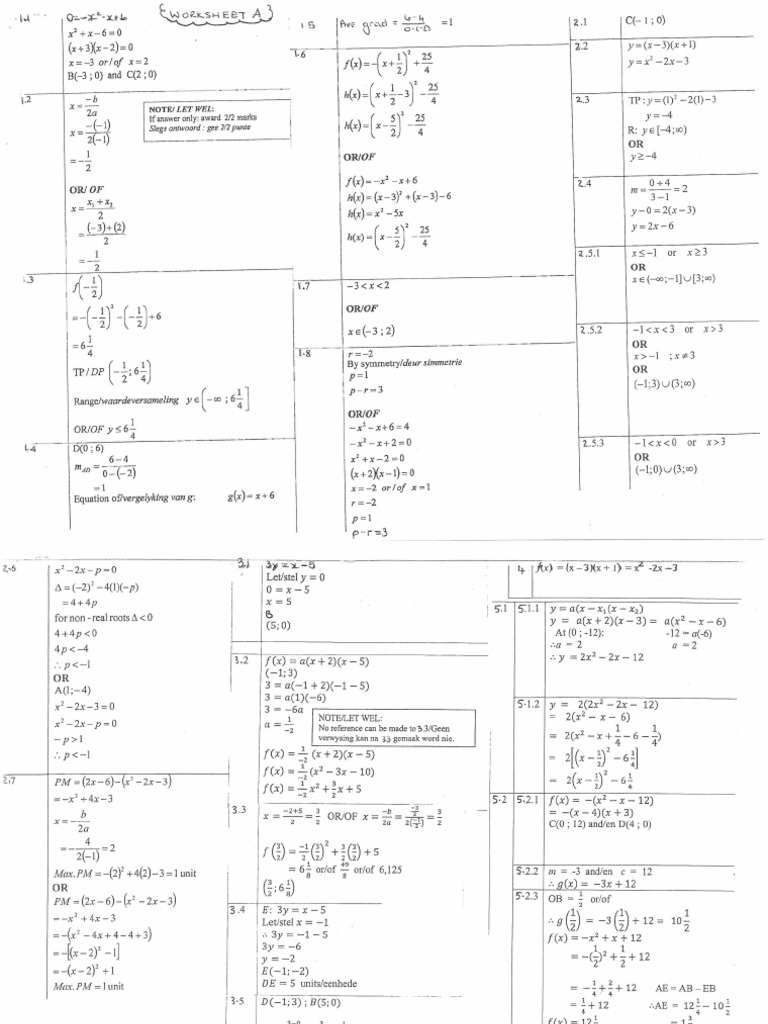 WORKSHEET A
1.1
0=-x²-x+6
x²+x-6=0
(x+3)(x-2)=0
x=-3 or/of x=2
B(-3 ; 0) and C(2 ; 0)
1.2
x=-b/2a
x=-(-1)/2(-1)
=-1/2
NOTE/ LET WEL:
If answer only: award 2/2 marks
Slegs antwoord : gee 2/2 punte
OR/ OF
x=(x₁+x₂)/2
=((-3)+(2))/2
=-1/2
1.3
f(-1/2)
=-(-1/2)²-(-1/2)+6
=6 1/4
TP / DP (-1/2 ; 6 1/4)
Range/waardeversameling y∈(-∞ ; 6 1/4]
OR/OF y≤6 1/4
1.4
D(0 ; 6)
m_AD=(6-4)/(0-(-2))
=1
Equation of/vergelyking van g: g(x)=x+6
1.5
Ave grad = (6-4)/(0-(-2)) =1
1.6
f(x)=-(x+1/2)²+25/4
h(x)=(x+1/2-3)²-25/4
h(x)=(x-5/2)²-25/4
OR/OF
f(x)=-x²-x+6
h(x)=(x-3)²+(x-3)-6
h(x)=x²-5x
h(x)=(x-5/2)²-25/4
1.7
-3<x<2
OR/OF
x∈(-3 ; 2)
1.8
r=-2
By symmetry/deur simmetrie
p=1
p-r=3
OR/OF
-x²-x+6=4
-x²-x+2=0
x²+x-2=0
(x+2)(x-1)=0
x=-2 or/of x=1
r=-2
p=1
p-r=3
2.1
C(-1 ; 0)
2.2
y=(x-3)(x+1)
y=x²-2x-3
2.3
TP : y=(1)²-2(1)-3
y=-4
R: y∈[-4;∞)
OR
y≥-4
2.4
m=(0+4)/(3-1)=2
y-0=2(x-3)
y=2x-6
2.5.1
x≤-1 or x≥3
OR
x∈(-∞;-1]∪[3;∞)
2.5.2
-1<x<3 or x>3
OR
x>-1 ; x≠3
OR
(-1;3)∪(3;∞)
2.5.3
-1<x<0 or x>3
OR
(-1;0)∪(3;∞)
2.6
x²-2x-p=0
Δ=(-2)²-4(1)(-p)
=4+4p
for non-real roots Δ<0
4+4p<0
4p<-4
∴p<-1
OR
A(1;-4)
x²-2x-3=0
x²-2x-p=0
-p>1
∴p<-1
2.7
PM=(2x-6)-(x²-2x-3)
=-x²+4x-3
x=-b/2a
=-4/2(-1)=2
Max.PM=-(2)²+4(2)-3=1 unit
OR
PM=(2x-6)-(x²-2x-3)
=-x²+4x-3
=-(x²-4x+4-4+3)
=-[(x-2)²-1]
=-(x-2)²+1
Max.PM=1 unit
3.1
3y=x-5
Let/stel y = 0
0 = x - 5
x = 5
B
(5; 0)
3.2
f(x) = a(x + 2)(x - 5)
(-1; 3)
3 = a(-1 + 2)(-1 - 5)
3 = a(1)(-6)
3 = -6a
a = 1/-2
NOTE/LET WEL:
No reference can be made to 3.3/Geen
verwysing kan na 3.3 gemaak word nie.
f(x) = 1/-2 (x + 2)(x - 5)
f(x) = 1/-2 (x² - 3x - 10)
f(x) = 1/-2 x² + 3/2 x + 5
3.3
x = (-2+5)/2 = 3/2 OR/OF x = -b/2a = (-3/2)/(2(-1/2)) = 3/2
f(3/2) = -1/2(3/2)² + 3/2(3/2) + 5
= 6 1/8 or/of 49/8 or/of 6,125
(3/2 ; 6 1/8)
3.4
E: 3y = x - 5
Let/stel x = -1
∴ 3y = -1 - 5
3y = -6
y = -2
E(-1; -2)
DE = 5 units/eenhede
3.5
D(-1; 3) ; B(5; 0)
4
f(x) = (x - 3)(x + 1) = x² - 2x - 3
5.1
5.1.1
y = a(x - x₁)(x - x₂)
y = a(x + 2)(x - 3) = a(x² - x - 6)
At (0 ; -12): -12 = a(-6)
∴a = 2 a = 2
∴ y = 2x² - 2x - 12
5.1.2
y = 2(2x² - 2x - 12)
= 2(x² - x - 6)
= 2(x² - x + 1/4 - 6 - 1/4)
= 2[(x - 1/2)² - 6 1/4]
= 2(x - 1/2)² - 6 1/4
5.2
5.2.1
f(x) = -(x² - x - 12)
= -(x - 4)(x + 3)
C(0 ; 12) and/en D(4 ; 0)
5.2.2
m = -3 and/en c = 12
∴ g(x) = -3x + 12
5.2.3
OB = 1/2 or/of
∴ g(1/2) = -3(1/2) + 12 = 10 1/2
f(x) = -x² + x + 12
= -(1/2)² + 1/2 + 12
= -1/4 + 2/4 + 12 AE = AB - EB
= 1/4 + 12 ∴AE = 12 1/4 - 10 1/2